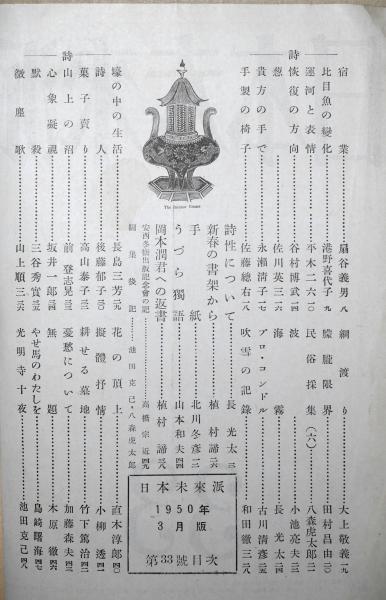 詩
宿業 扇谷義男 八
比目魚の變化 港野喜代子 九
運河と表情 平木二六 一〇
恢復の方向 谷村博武 一四
愁 佐川英三 一六
貴方の手で 永瀬清子 一七
手製の椅子 佐藤總右 一八
綱渡り 大上敬義 一九
朦朧限界 田村昌由 二〇
民俗採集(六) 八森虎太郎 二一
波 小池亮夫 二三
海霧 長光太 二四
プロ・コンドル 古川清彦 二五
吹雪の記錄 和田徹三 二六
The Incense Burner
詩性について 長光太 二
新春の書架から 植村諦 六
手紙 北川冬彦 一二
うづら獨語 山本和夫 四四
岡本潤君への返書 植村諦 三八
安西冬衞出版記念會の記 高橋宗近 四九
編集後記 池田克己・八森虎太郎
詩
壕の中の生活 長島三芳
詩人 後藤郁子 三〇
菓子賣り 高山泰子 三一
山上の沼 前登志晃 三二
心象凝視 坂井一郎
默殺 三谷秀實 三五
微塵歌 山上順三 三六
花の頂上 直木淳郎 四〇
擬體抒情 小柳透 四一
耕せる墓地 竹下篤治 四二
憂愁について 加藤森夫 四三
無題 木原徹 四六
やせ馬のわたしを 島崎曙海 四七
光明寺十夜 池田克己 四八
日本未來派
1950年
3月版
第33號目次